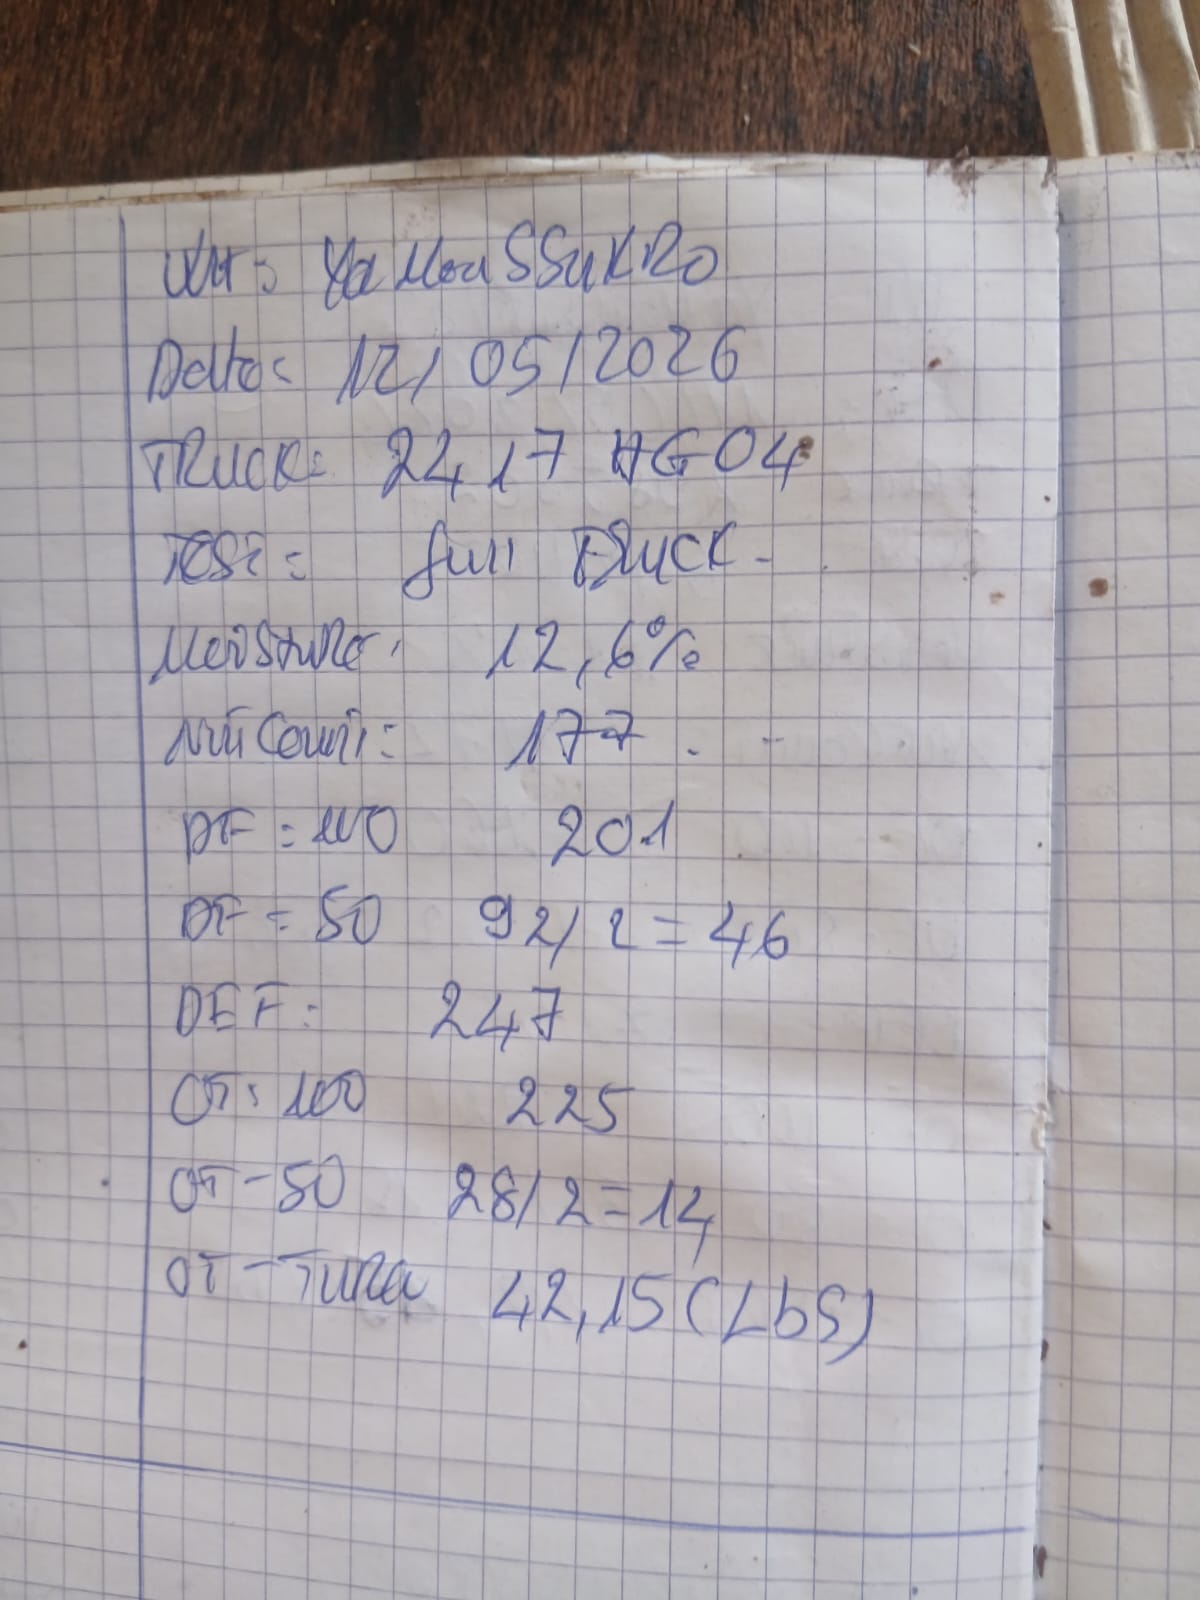 WH= YaMouSSuKRO
Date= 12/05/2026
TRUCK= 2417 HG04
TEST= full TRUCK-
MoiSTuRe: 12,6%
NuT CounT: 177.
DF=100 201
DF=50 92/2=46
DEF: 247
OT:100 225
OT-50 28/2=14
OT-TuRa 42,15(LbS)